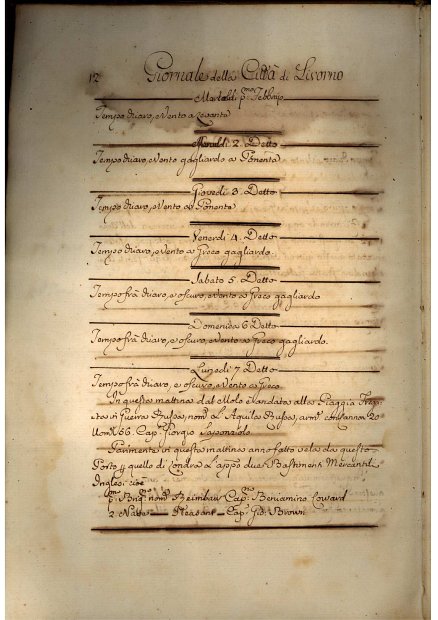 12 Giornale della Città di Livorno
Martedi p.mo Febbrajo
Tempo chiaro, e Vento a Levante
Mercoldì 2. Detto
Tempo chiaro, e Vento gagliardo a Ponente
Giovedi 3. Detto
Tempo chiaro, e Vento a Ponente
Venerdi 4. Detto
Tempo chiaro, e Vento a Greco gagliardo
Sabato 5. Detto
Tempo frà chiaro, e oscuro, e Vento a Greco gagliardo
Domenica 6 Detto
Tempo frà chiaro, e oscuro, e Vento a Greco gagliardo.
Lunedi 7 Detto
Tempo frà chiaro, e oscuro, e Vento a Greco
In questa mattina dal Molo è andata alla Piaggia
in Guerra Russa, nom.a L' Aquila Russa, arm.a con Cannoni 20
Uom. 66. Cap. Giorgio
Parimente in questa mattina anno fatto vela da questo
Porto p quello di Londra L' app.o due Bastimenti Mercantili
Inglesi cioè
p.mo Brig.no nom.o Cap.no Beniamino Coward
2 Nave Pleasant Cap. Gio. Brown